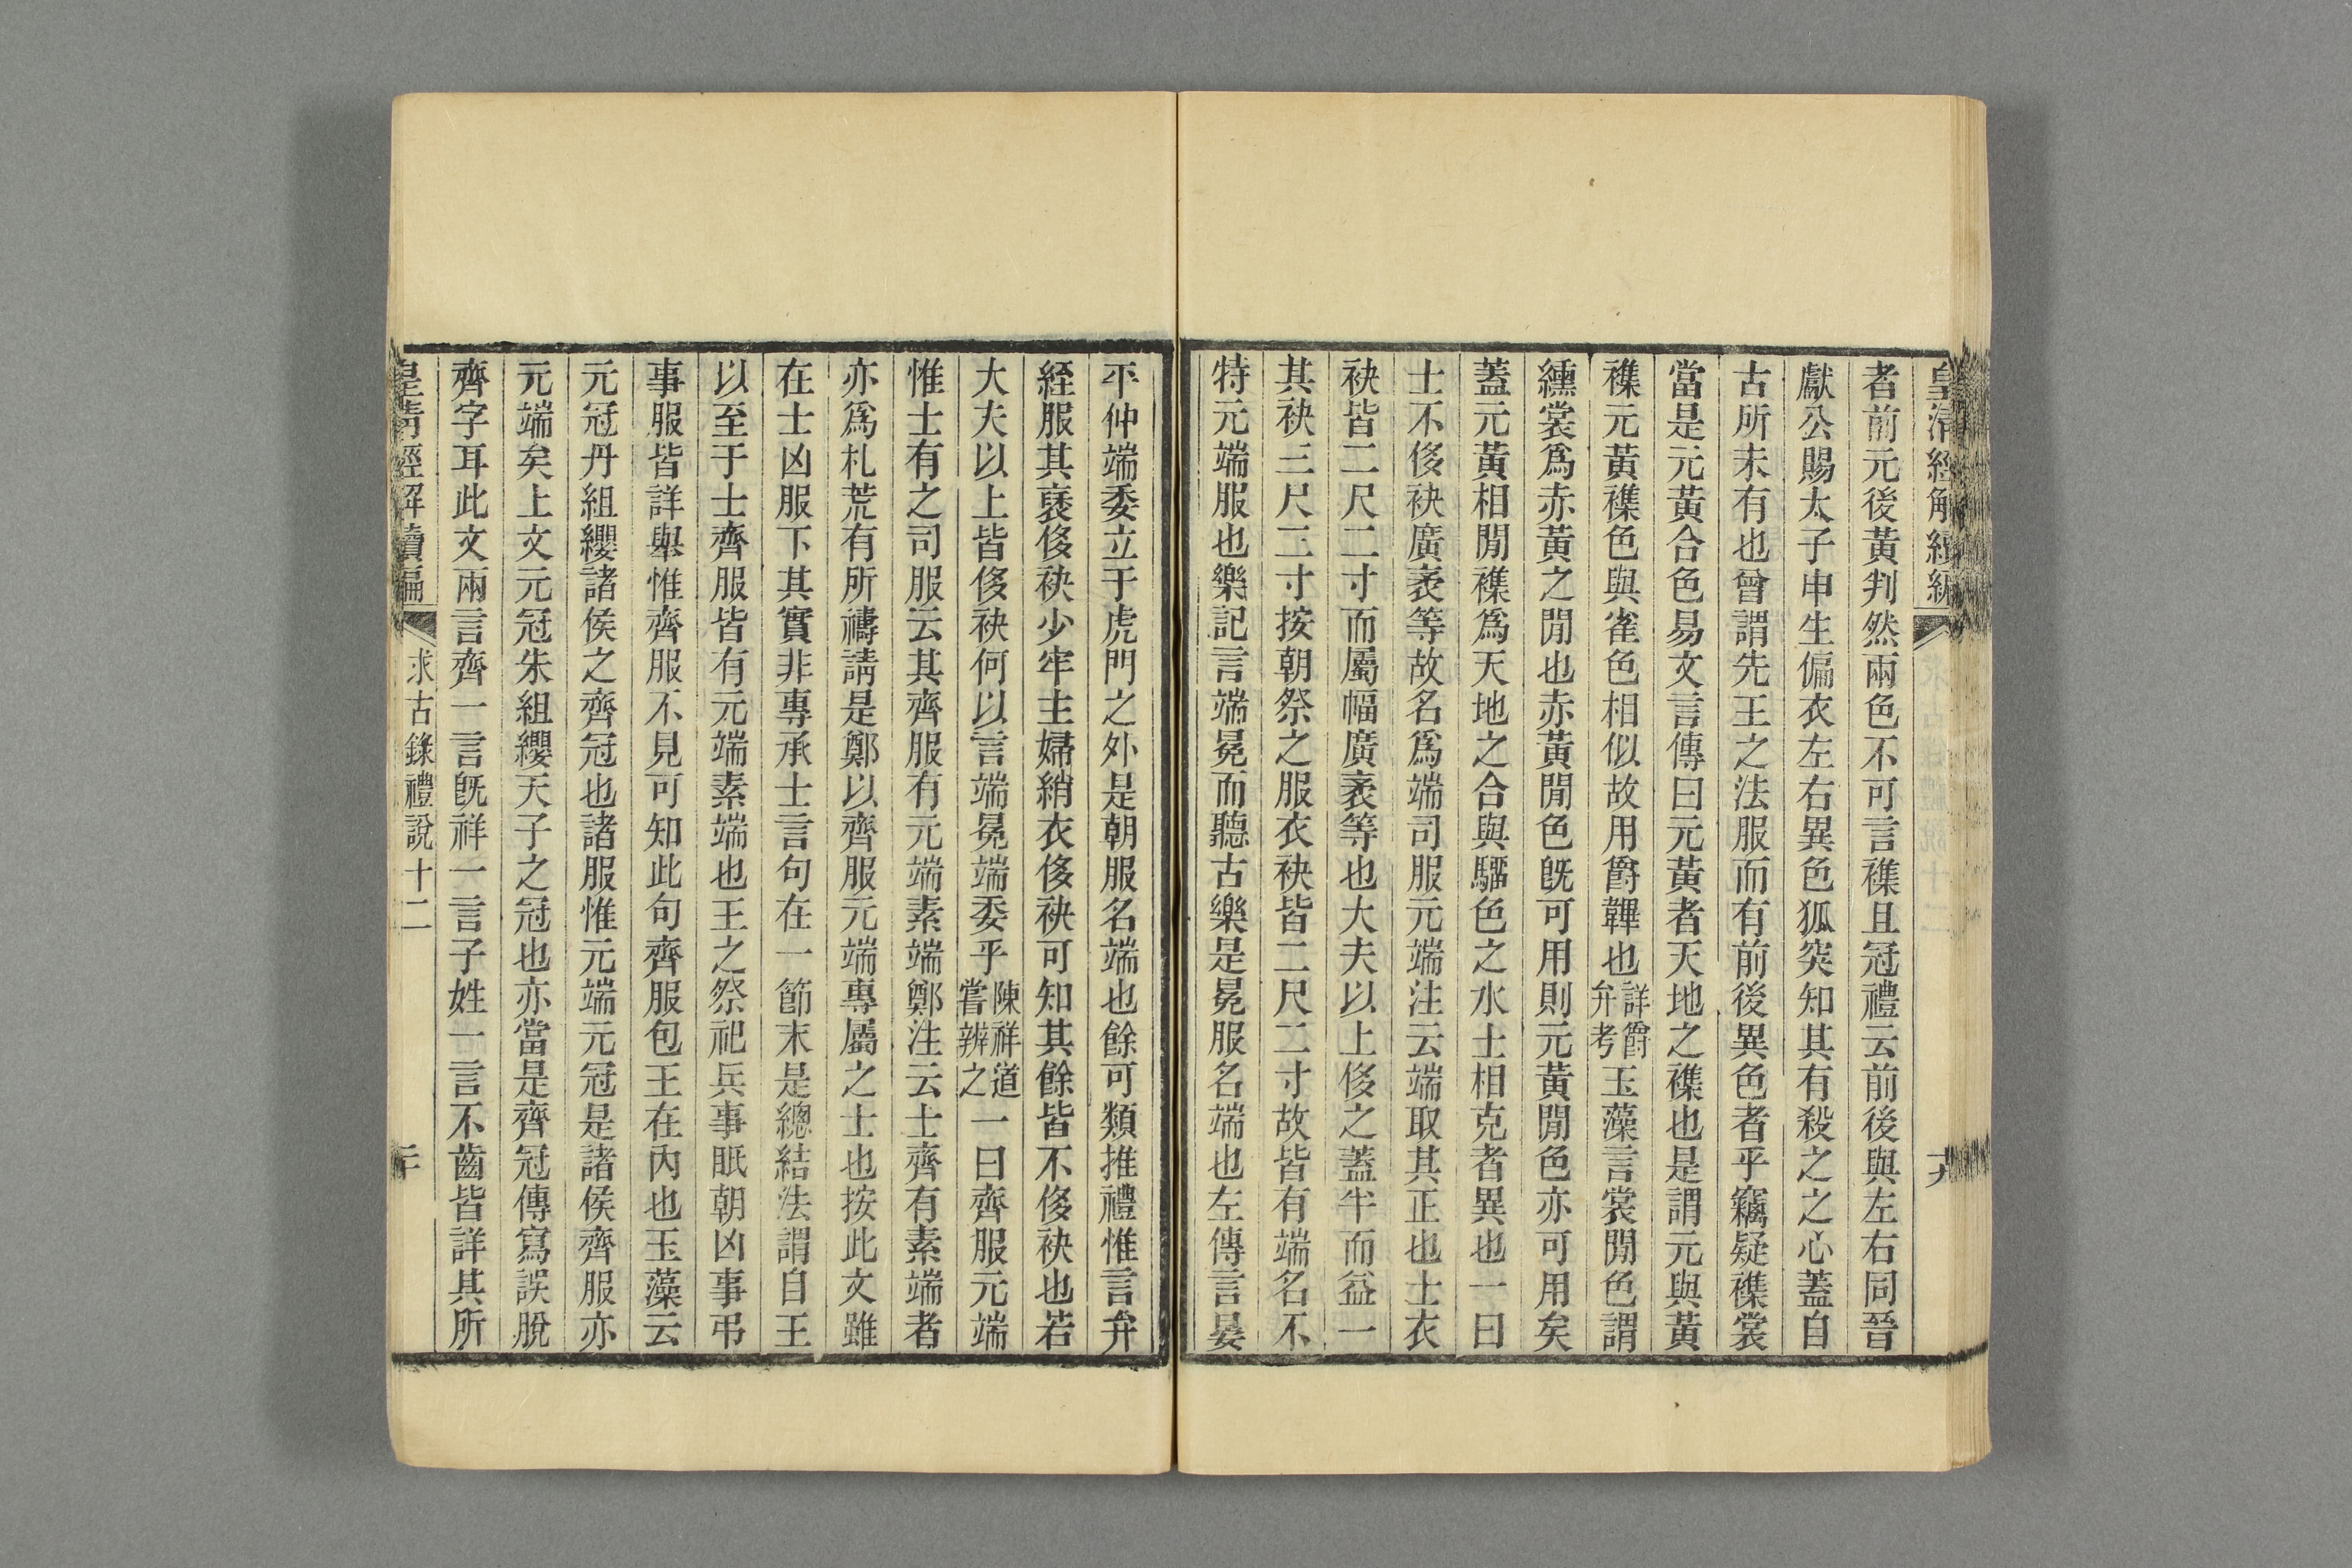 皇清經解續編
十九
者前元後黃判然兩色不可言襍且冠禮云前後與左右同晉
獻公賜太子申生偏衣左右異色狐突知其有殺之之心蓋自
古所未有也曾謂先王之法服而有前後異色者乎竊疑襍裳
當是元黃合色易文言傳曰元黃者天地之襍也是謂元與黃
襍元黃襍色與雀色相似故用爵韠也詳爵弁考玉藻言裳閒色謂
纁裳爲赤黃之閒也赤黃閒色旣可用則元黃閒色亦可用矣
蓋元黃相閒襍爲天地之合與驪色之水土相克者異也一曰
士不侈袂廣袤等故名爲端司服元端注云端取其正也士衣
袂皆二尺二寸而屬幅廣袤等也大夫以上侈之蓋半而益一
其袂三尺三寸按朝祭之服衣袂皆二尺二寸故皆有端名不
特元端服也樂記言端冕而聽古樂是冕服名端也左傳言晏
平仲端委立于虎門之外是朝服名端也餘可類推禮惟言弁
絰服其衰侈袂少牢主婦綃衣侈袂可知其餘皆不侈袂也若
大夫以上皆侈袂何以言端冕端委乎陳祥道嘗辨之一曰齊服元端
惟士有之司服云其齊服有元端素端鄭注云士齊有素端者
亦爲札荒有所禱請是鄭以齊服元端專屬之士也按此文雖
在士凶服下其實非專承士言句在一節末是總結法謂自王
以至于士齊服皆有元端素端也王之祭祀兵事眂朝凶事弔
事服皆詳舉惟齊服不見可知此句齊服包王在內也玉藻云
元冠丹組纓諸侯之齊冠也諸服惟元端元冠是諸侯齊服亦
元端矣上文元冠朱組纓天子之冠也亦當是齊冠傳寫誤脫
齊字耳此文兩言齊一言旣祥一言子姓一言不齒皆詳其所
皇清經解續編
求古錄禮說十二
二十